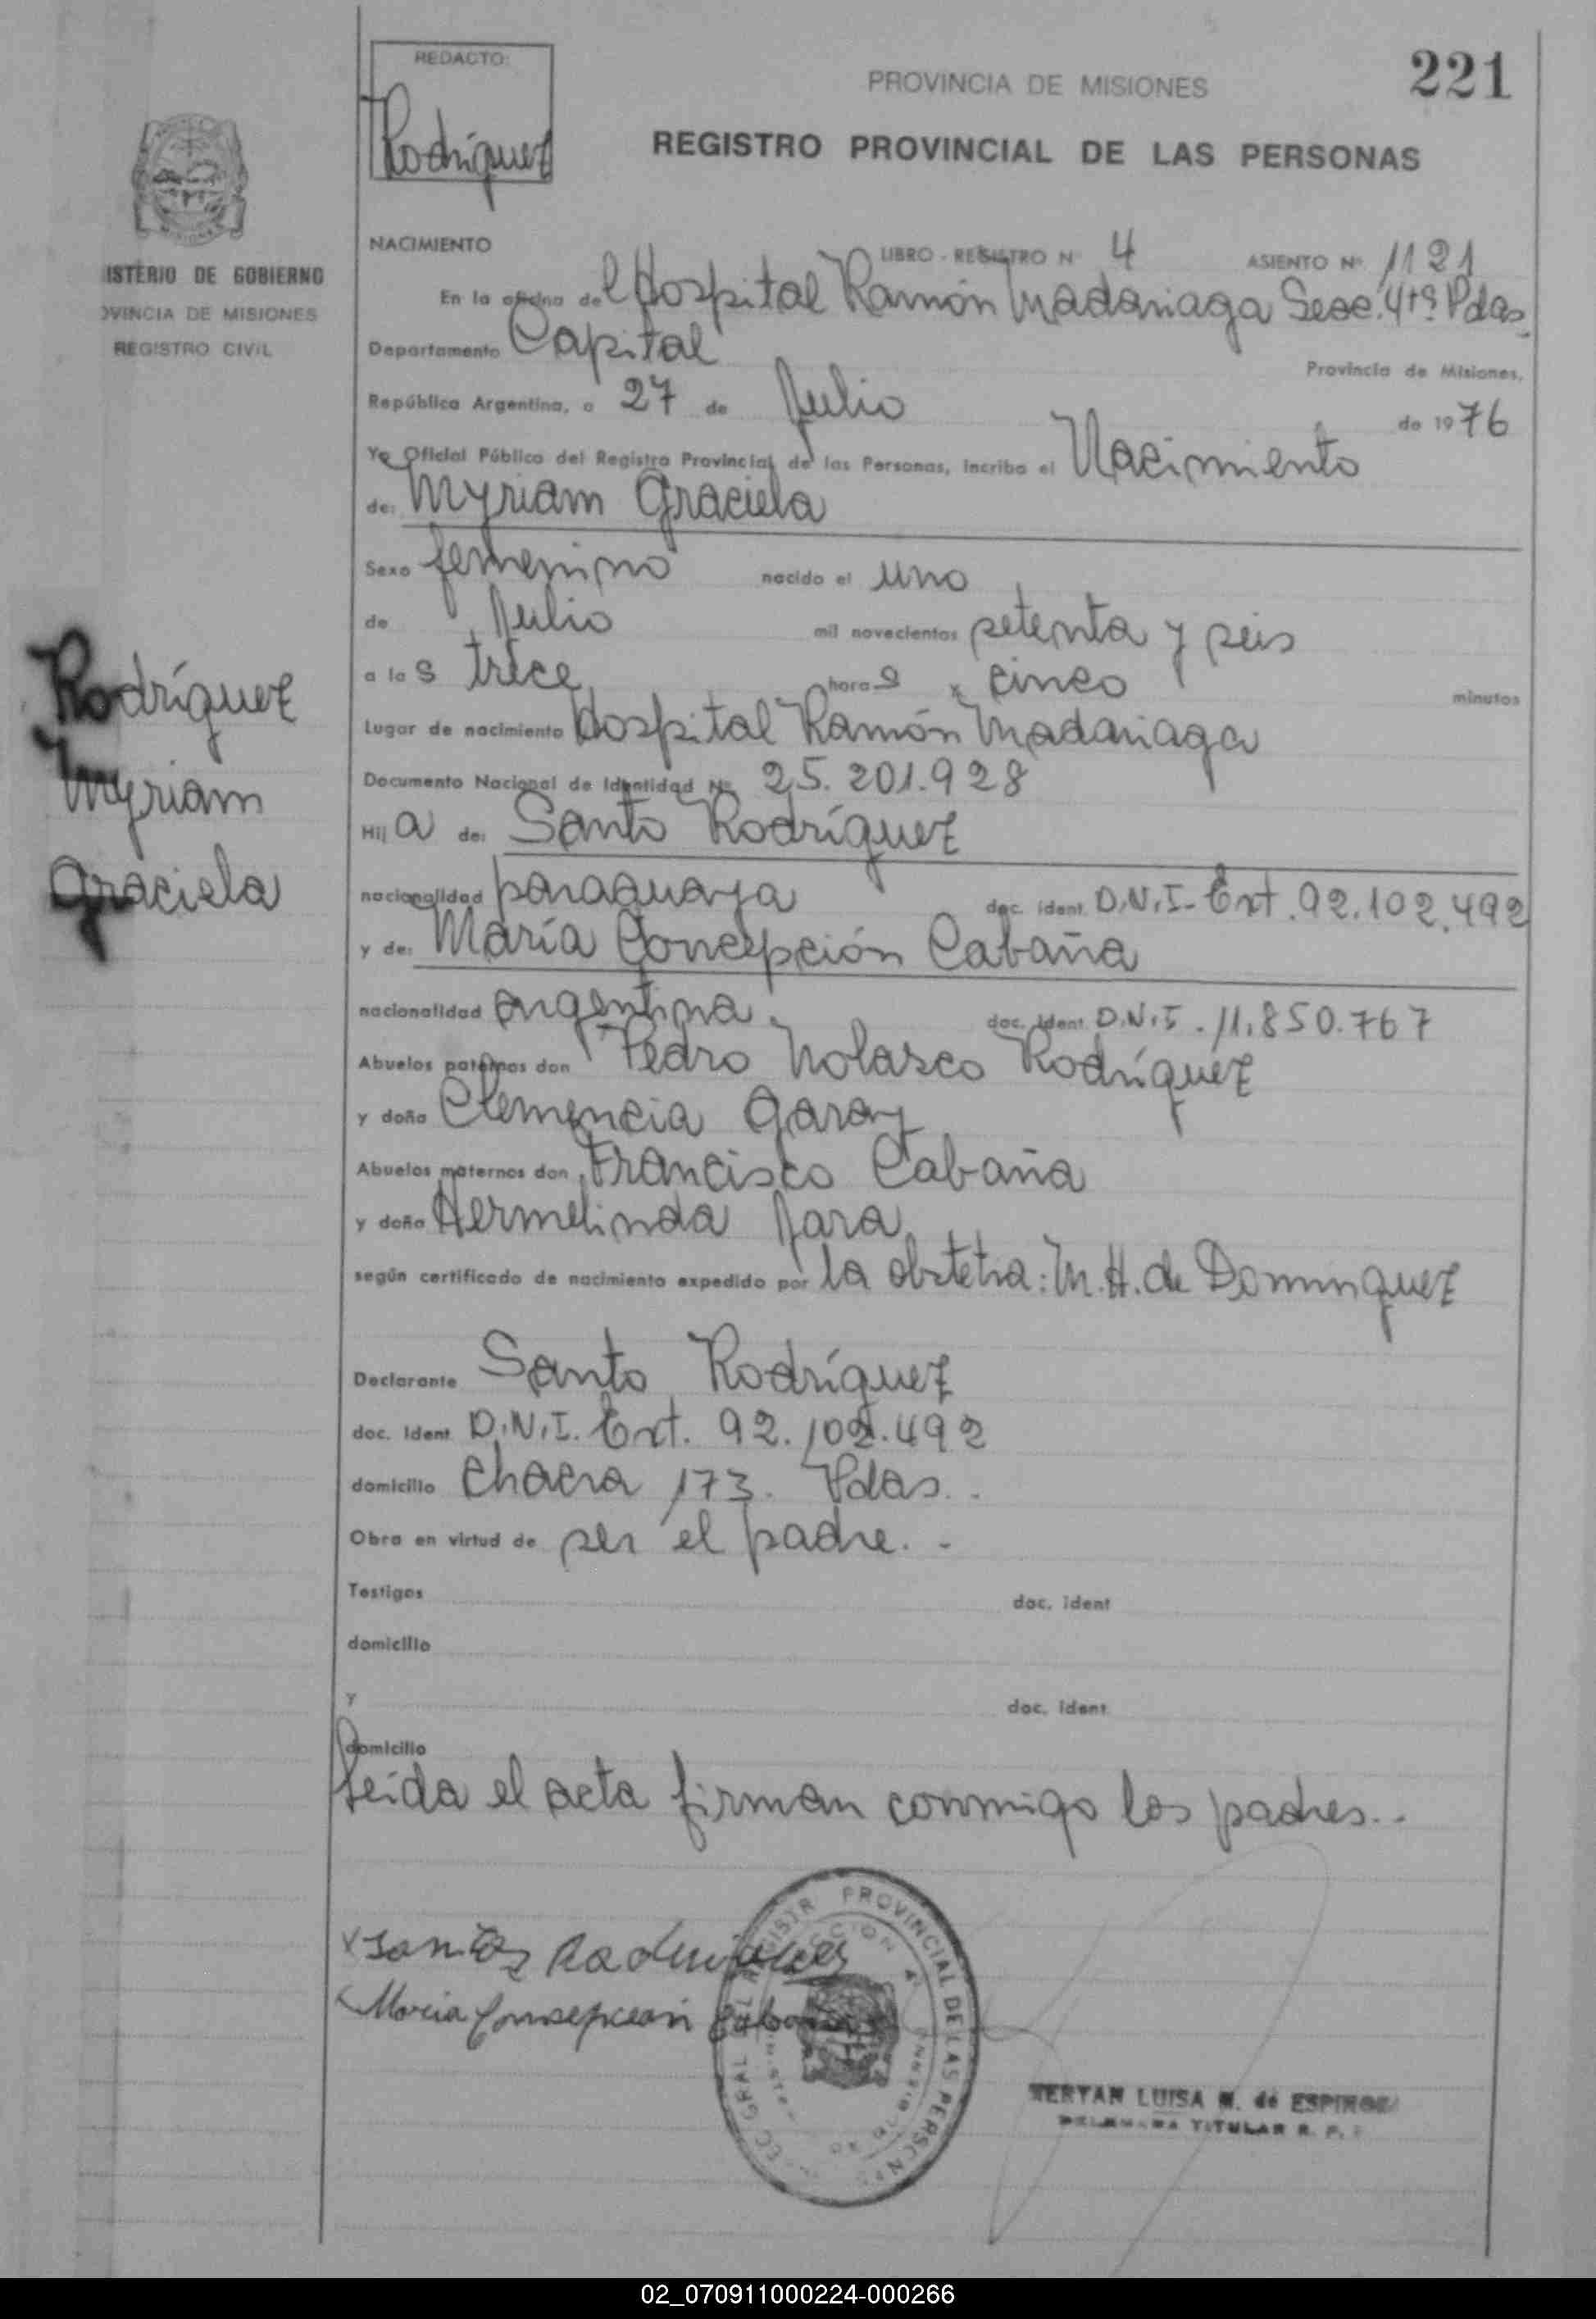 REDACTO:
Rodríguez
PROVINCIA DE MISIONES
221
REGISTRO PROVINCIAL DE LAS PERSONAS
ISTERIO DE GOBIERNO
OVINCIA DE MISIONES
REGISTRO CIVIL
NACIMIENTO LIBRO - REGISTRO Nº 4 ASIENTO Nº 1121
En la oficina del Hospital Ramón Madariaga Secc. 4tª Pdas
Departamento Capital Provincia de Misiones,
República Argentina, a 27 de Julio de 1976
Yo Oficial Público del Registro Provincial de las Personas, incribo el Nacimiento
de: Myriam Graciela
Sexo femenino nacido el uno
de Julio mil novecientos setenta y seis
a las trece horas y cinco minutos
Lugar de nacimiento Hospital Ramón Madariaga
Documento Nacional de Identidad Nº 25.201.928
Hija de: Santo Rodríguez
nacionalidad paraguaya doc. ident. D.N.I. Ext. 92.102.492
y de: María Concepción Cabaña
nacionalidad argentina. doc. ident. D.N.I. 11.850.767
Abuelos paternos don Pedro Nolasco Rodríguez
y doña Clemencia Garay
Abuelos maternos don Francisco Cabaña
y doña Hermelinda Jara
según certificado de nacimiento expedido por la obstetra: M.H. de Dominguez
Declarante Santo Rodríguez
doc. Ident D.N.I. Ext. 92.102.492
domicilio Chacra 173. Pdas..
Obra en virtud de ser el padre. -
Testigos doc. ident
domicilio
y doc. ident
domicilio
Leída el acta firman conmigo los padres..
Rodríguez
Myriam
Graciela
x Santos Rodriguez
x Maria Consepcion Cabaña
PROVINCIAL DE LAS PERSONAS
LUISA M. de ESPINOZA
TITULAR R. P.
02_070911000224-000266